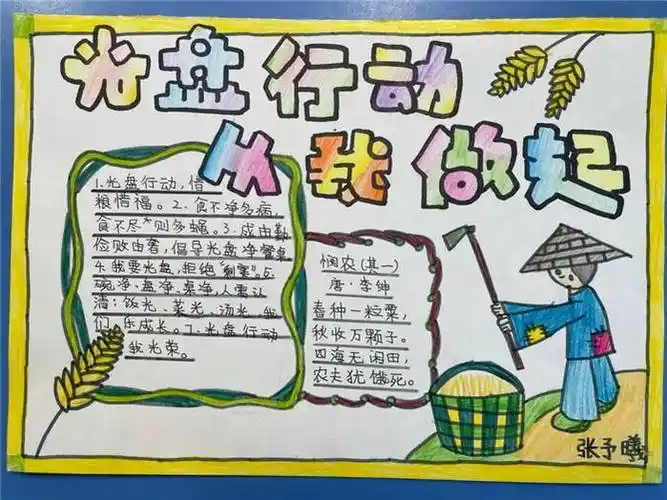 光盘行动
从我做起
1.光盘行动,惜
粮惜福。2.食不净多病,
食不尽则多蝇。3.成由勤
俭败由奢,倡导光盘净餐桌
4.我要光盘,拒绝“剩宴”。5.
碗净、盘净、桌净人需认
清;饭光、菜光、汤光,我
们乐成长。7.光盘行动
我光荣。
悯农(其一)
唐·李绅
春种一粒粟,
秋收万颗子。
四海无闲田,
农夫犹饿死。
张予曦